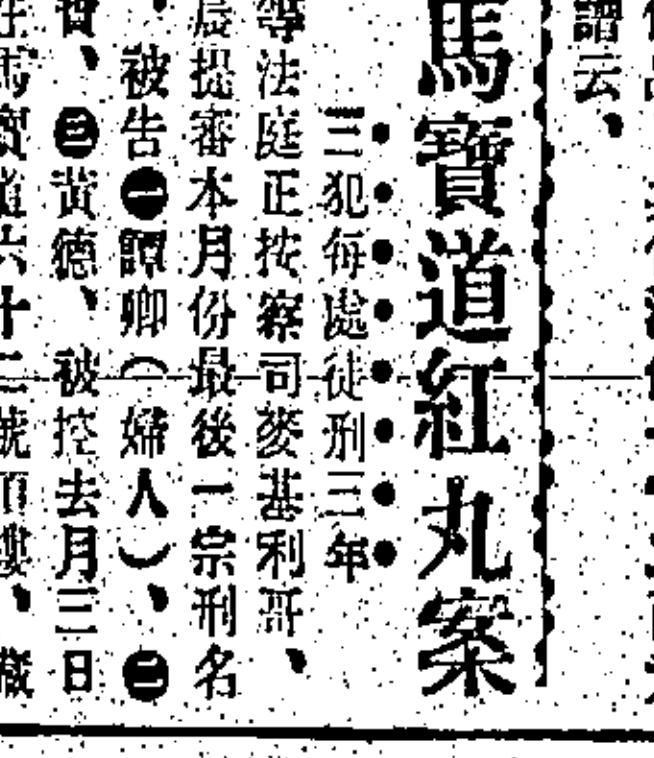 譜云、
馬寶道紅丸案
三犯每處徒刑三年
等法庭正按察司麥基利哥、
晨提審本月份最後一宗刑名
、被告㊀譚卿（婦人）、㊁
寶、㊂黃德、被控去月三日
馬寶道六十二號頂樓、藏